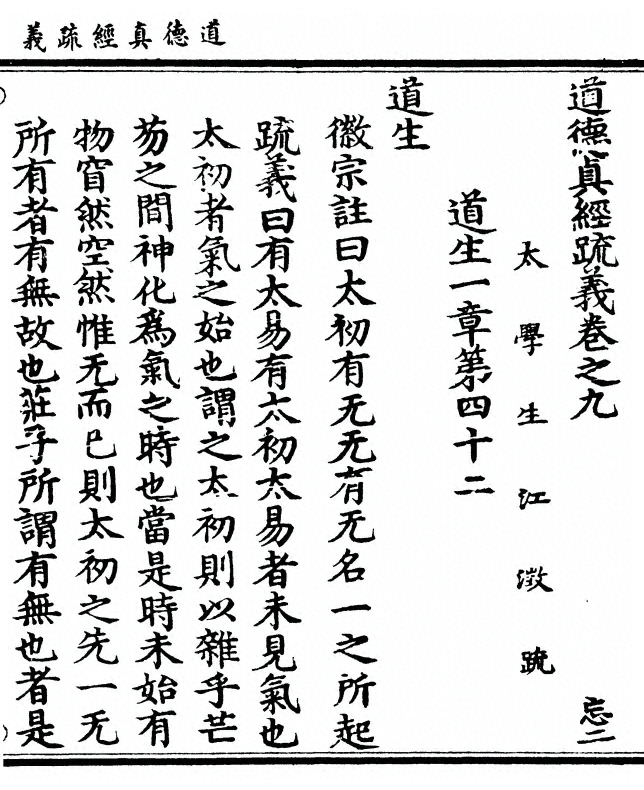 道德真經疏義
道德真經疏義卷之九
忘二
太學生江澂疏
道生一章第四十二
道生
徽宗註曰太初有无无有无名一之所起
疏義曰有太易有太初太易者未見氣也
太初者氣之始也謂之太初則以雜乎芒
芴之間神化爲氣之時也當是時未始有
物窅然空然惟无而已則太初之先一无
所有者有無故也莊子所謂有無也者是